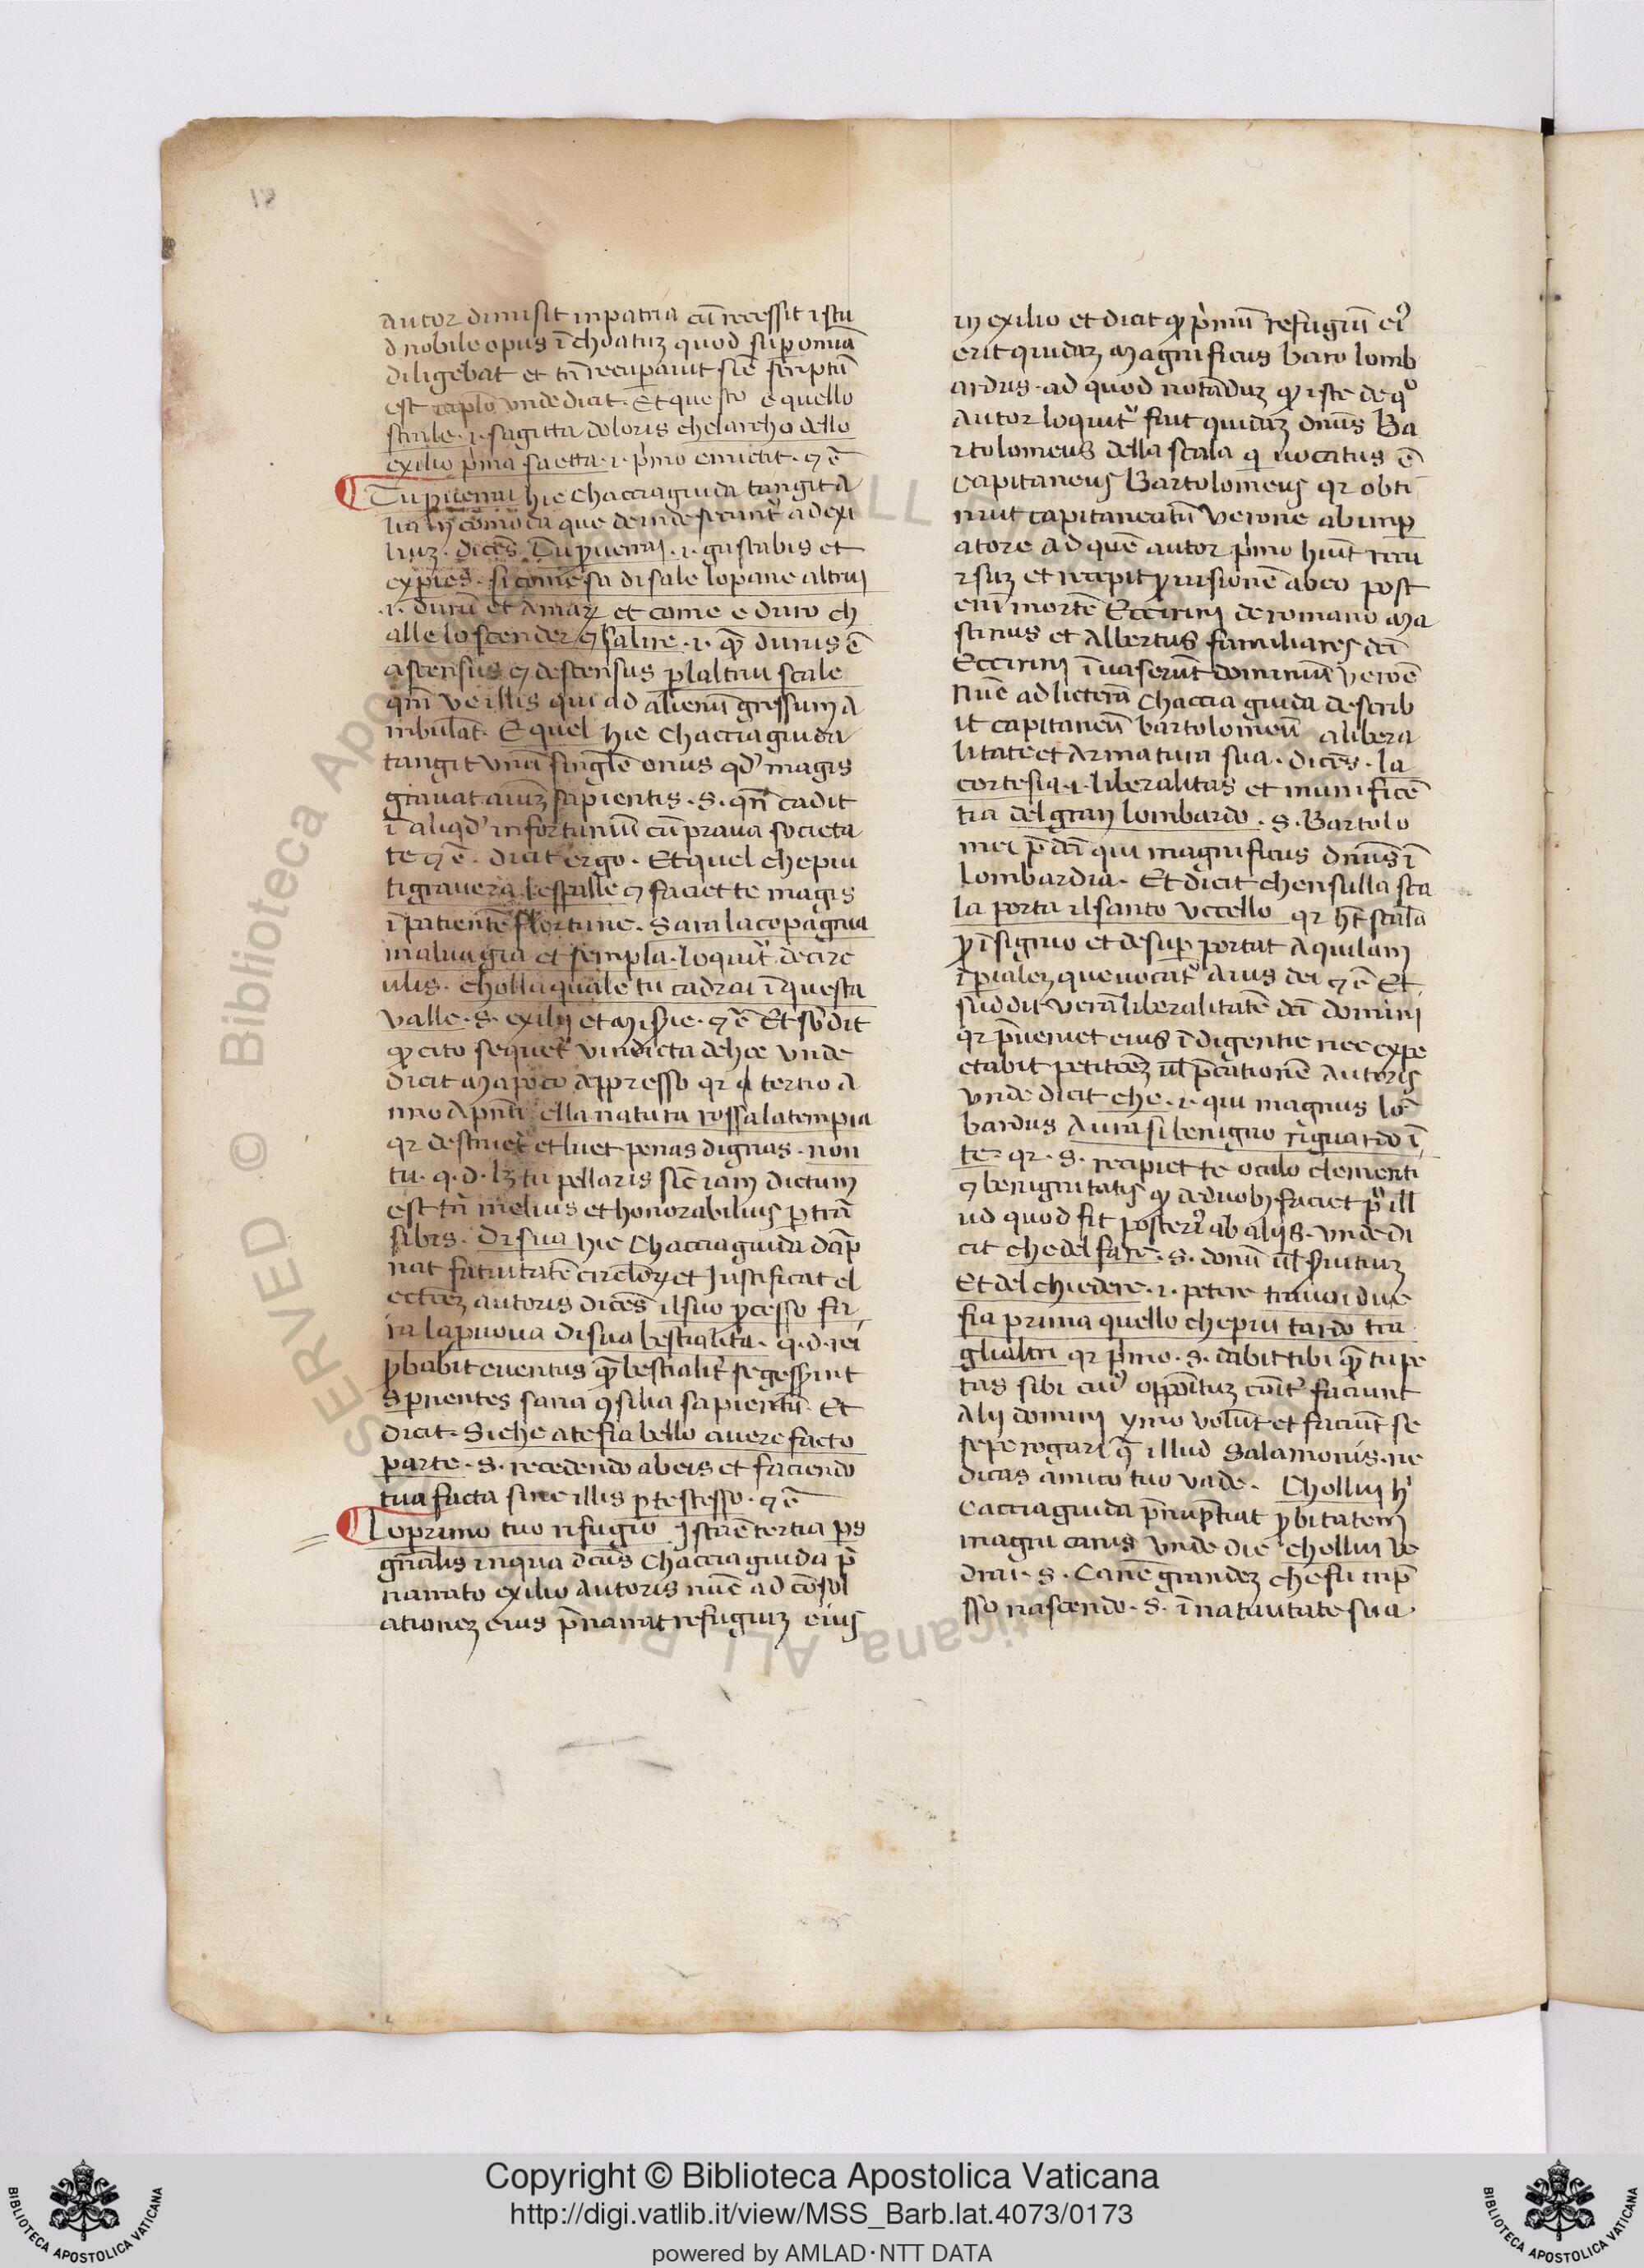 autor dimisit in patria cū recessit ⁊ stu
d nobile opus īchoatuʒ quod suꝑ omnia
diligebat et tn̄ recuꝑauit sic̄ scriptū
est unde dicit. Et questo e quello
strale .ı. sagitta doloris che larcho dello
exilio p̍ma saetta .ı. p̍mo emictit. ⁊ c̄
Tu ꝓuerai hic Chacciaguida tangit a
lia in cōmoda que deinde secunt᷑ ad exi
liuʒ. dicēs Tu ꝓuerai .ı. gustabis et
exp̍ies. si come sa di sale lo pane altrui
.ı. durū et amaꝝ et come e duro ch
alle lo scender ⁊ salire .ı. qͣ durus ē
ascensus ⁊ descensus ꝑ laltrui scale
qm̄ ve illis qui ad alienū gressum a
mbulāt. E quel hic Chacciaguida
tangit unū singlē onus qd̓ magis
grauat aīuʒ sapientis .S. qn̄ cadit
ī aliqd̓ infortuniū cū praua societa
te ⁊ c̄. dicit ergo. Et quel che piu
ti grauera le spalle ⁊ faciet te magis
īpatientē fortune. Sara la copagnia
maluagia et sempia. loquit᷑ de cir
ulis. cholla quale tu cadrai ī questa
valle .S. exilij et miẜie. ⁊ c̄ Et sb̄dit
ꝙ cito sequet᷑ vindicta de hoc unde
dicit Ma poco appresso qꝛ a tertio a
nno apn̄ti ella natura rossa la tempia
qꝛ destruet᷑ et luet penas dignas. non
tu. q.d. lʒ tu pellaris sic̄ iam dictum
est tn̄ melius et honorabilius ꝑ trā
sibis. Di sua hic Chacciaguida dāp
nat fatuitatē circloꝝ et Justificat el
ectōeʒ autoris dicēs il suo ꝓcesso fa
ra la pruoua di sua bestialita. q.d. rei
ꝓbabit euentus qͣ bestialit᷑ se gesẜint
Spnentes sana ꝯsilia sapientū. Et
dicit. Si che a te fia bello auere facto
parte .S. recedendo ab eis et faciendo
tua facta sine illis ꝑ te stesso. ⁊ c̄
Lo primo tuo rifugio Ista ē tertia ps
gn̄alis in qua dc̄us Chacciaguida p̄
narrato exilio autoris nūc ad cōsol
ationeʒ eius p̄narrat refugiuʒ eius
in exilio et dicit ꝙ p̍mū refugiū ei᷒
erit quidaʒ magnificus baro lomb
ardus. ad quod notāduʒ ꝙ iste de qͦ
autor loquit᷑ fuit quidaʒ dn̄us Ba
rtolomeus della scala q uocatus ē
Capitaneus Bartolomeus qꝛ obti
nuit capitaneatū Verone ab imp
atore ad quē autor p̍mo hūit recu
rsuʒ et recepit ꝓuisionē ab eo post
eni mortē Eccirini de romano Ma
stinus et Albertus familiares dc̄i
Eccirini īuaserūt dominiū verōe
Nūc ad licterā Chacciaguida describ
it capitaneū bartolomeū a libera
litate et armatura sua. dicēs. la
cortesia .ı. liberalitas et munificē
tia del gran lombardo .S. Bartolo
mei p̄dc̄i qui magnificus dn̄us ī
Lombardia. Et dicit che n sulla sca
la porta il santo vccello qꝛ ht̄ scalā
ꝓ īsignio et desuꝑ portat Aquilam
īꝑialeʒ que uocat᷑ Auis dei ⁊ c̄ Et
suddit verā liberalitatē dc̄i domini
qꝛ p̄ueniet eius īdigentie nec expe
ctabit petitōeʒ ul̄ p̄cationē autoris
unde dicit che .ı. qui magnus lo
bardus Aura si benigno riguardo ī
te. qꝛ .S. recipiet te oculo clementi
⁊ benignitatis ꝙ de duobʒ faciet p̍ ill
ud quod fit posteri᷒ ab alijs. unde di
cit che del fare .S. donū ul̄ ẜuitiuʒ
Et del chiedere .ı. petere tra uoi due
fia prima quello che piu tardo tra
gli altri qꝛ p̍mo .S. dabit tibi qͣ tu pe
tas sibi cui᷒ oppoītuʒ cōit᷑ faciunt
Alij domini ymo volūt et faciūt se
sepe rogari illud Salamonis. ne
dicas amico tuo vade. Chollui h̍
Cacciaguida p̄nuptiat ꝓbitatem
magni canis unde dic̄ chollui ve
drai .S. Canē grandeʒ che fu imp
sso nascendo .S. ī natiuitate sua.
Copyright © Biblioteca Apostolica Vaticana
http://digi.vatlib.it/view/MSS_Barb.lat.4073/0173
powered by AMLAD·NTT DATA